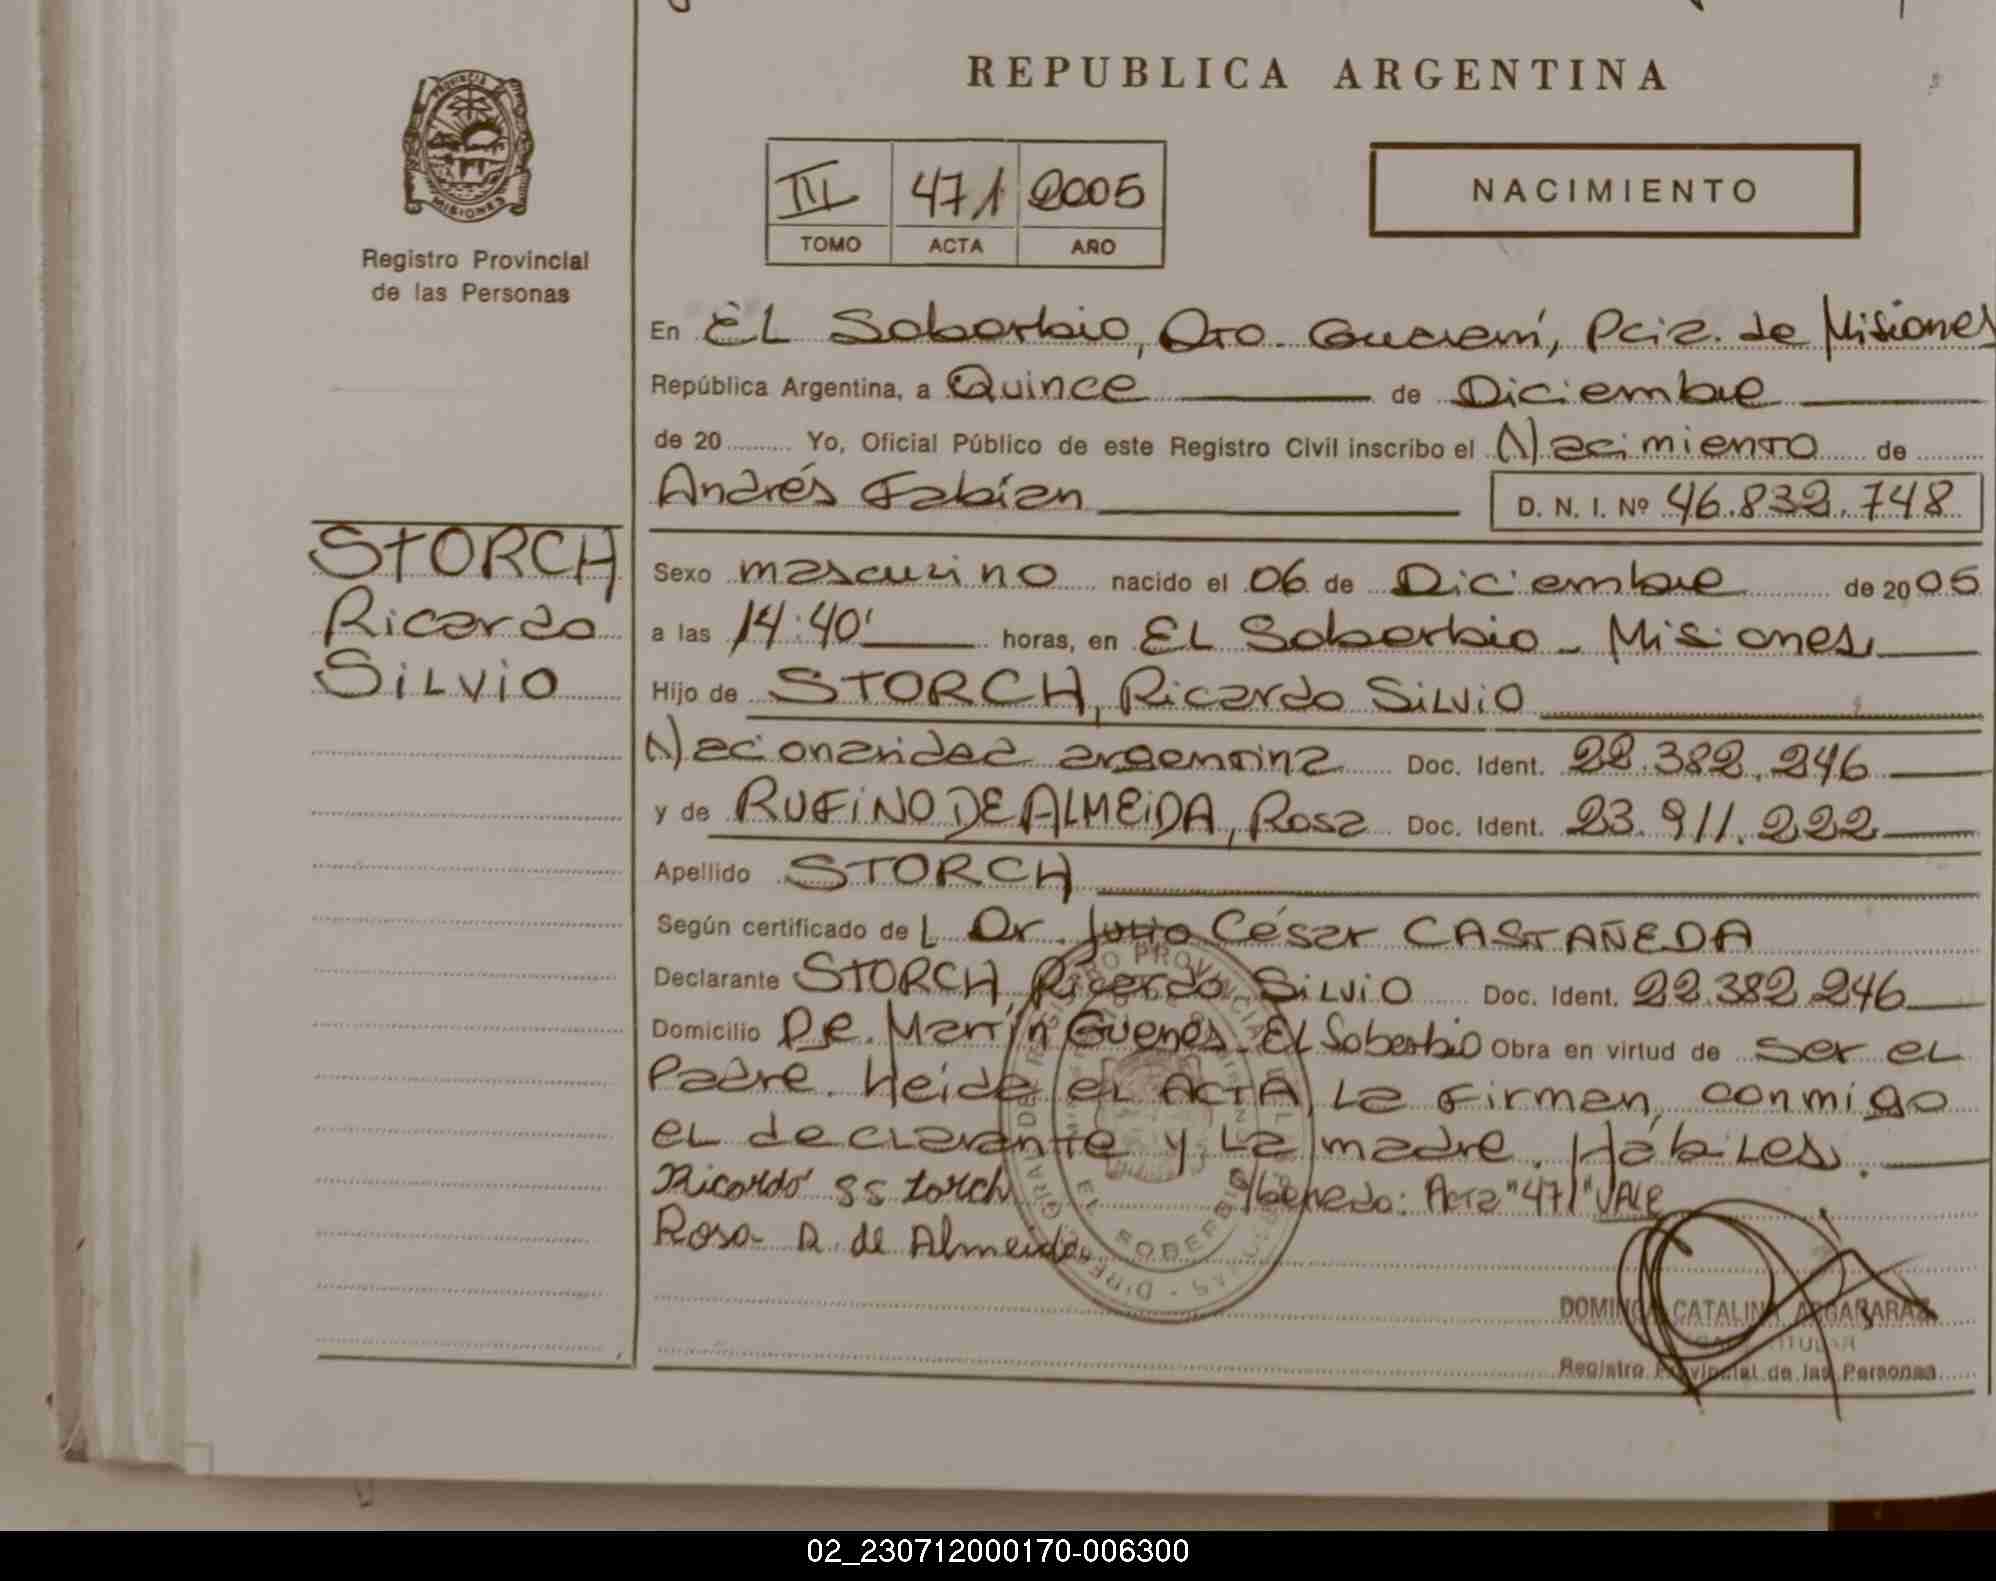 REPUBLICA ARGENTINA
PROVINCIA DE
MISIONES
Registro Provincial
de las Personas
III 471 2005
TOMO ACTA AÑO
NACIMIENTO
En EL Soberbio, Dto. Guaraní, Pcia. de Misiones
República Argentina, a Quince de Diciembre
de 20 Yo, Oficial Público de este Registro Civil inscribo el Nacimiento de
Andrés Fabian D. N. I. Nº 46.832.748
STORCH
Ricardo
SiLviO
Sexo masculino nacido el 06 de Diciembre de 2005
a las 14:40' horas, en EL Soberbio - Misiones
Hijo de STORCH, Ricardo SiLviO
Nacionalidad argentina Doc. Ident. 22.382.246
y de RUFiNO DE ALMEiDA, Rosa Doc. Ident. 23.911.222
Apellido STORCH
Según certificado de L Dr. Julio César CASTAÑEDA
Declarante STORCH, Ricardo SiLviO Doc. Ident. 22.382.246
Domicilio Martín Guemes - EL Soberbio Obra en virtud de ser eL
Padre. Leida eL ACTA, La Firman, conmigo
eL decLarante y La madre. HábiLes.
Ricardo S Storch Acta "471" VALE
Rosa R. de Almeida
REGISTRO PROVINCIAL DE LAS PERSONAS
EL SOBERBIO
DOMINGA CATALINA ARGAÑARAZ
TITULAR
Registro Provincial de las Personas
02_230712000170-006300